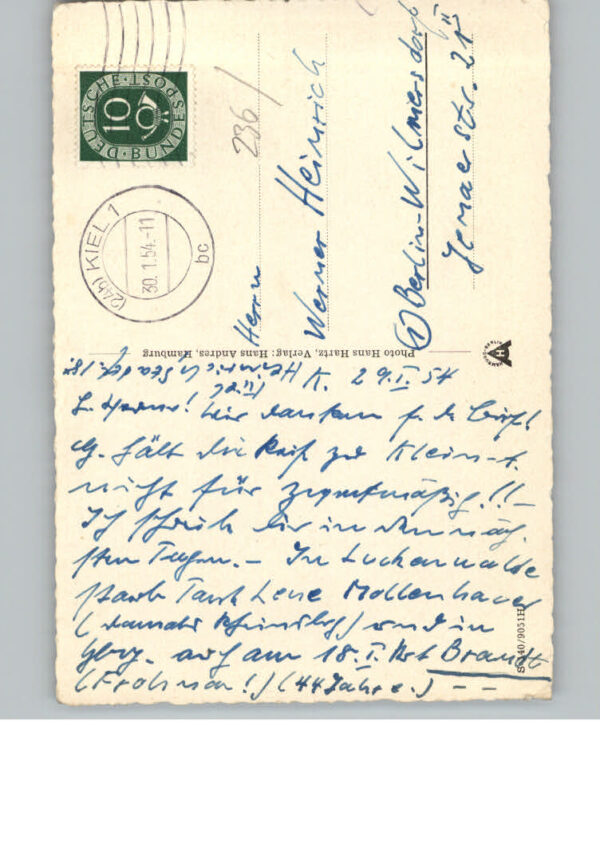 DEUTSCHE BUNDESPOST
10
(24b) KIEL 1
30.1.54.-11
bc
236
Herrn
Werner Heinrich
(1) Berlin-Wilmersdorf
Jenaer str. 21 II
Photo Hans Hartz, Verlag: Hans Andres, Hamburg
K. 29.I.54
L. Werner! Wir danken f. d. Brief!
G. hält die Reise zu Klein-
nicht für zweckmäßig!! –
Ich schreibe dir in den näch-
sten Tagen. – In Luckenwalde
starb Tante Lene Mollenhauer
(damals) und in
auf am 18. I. Brandt
(Frohnau!) (44 Jahre.) – –
S 140/9051H